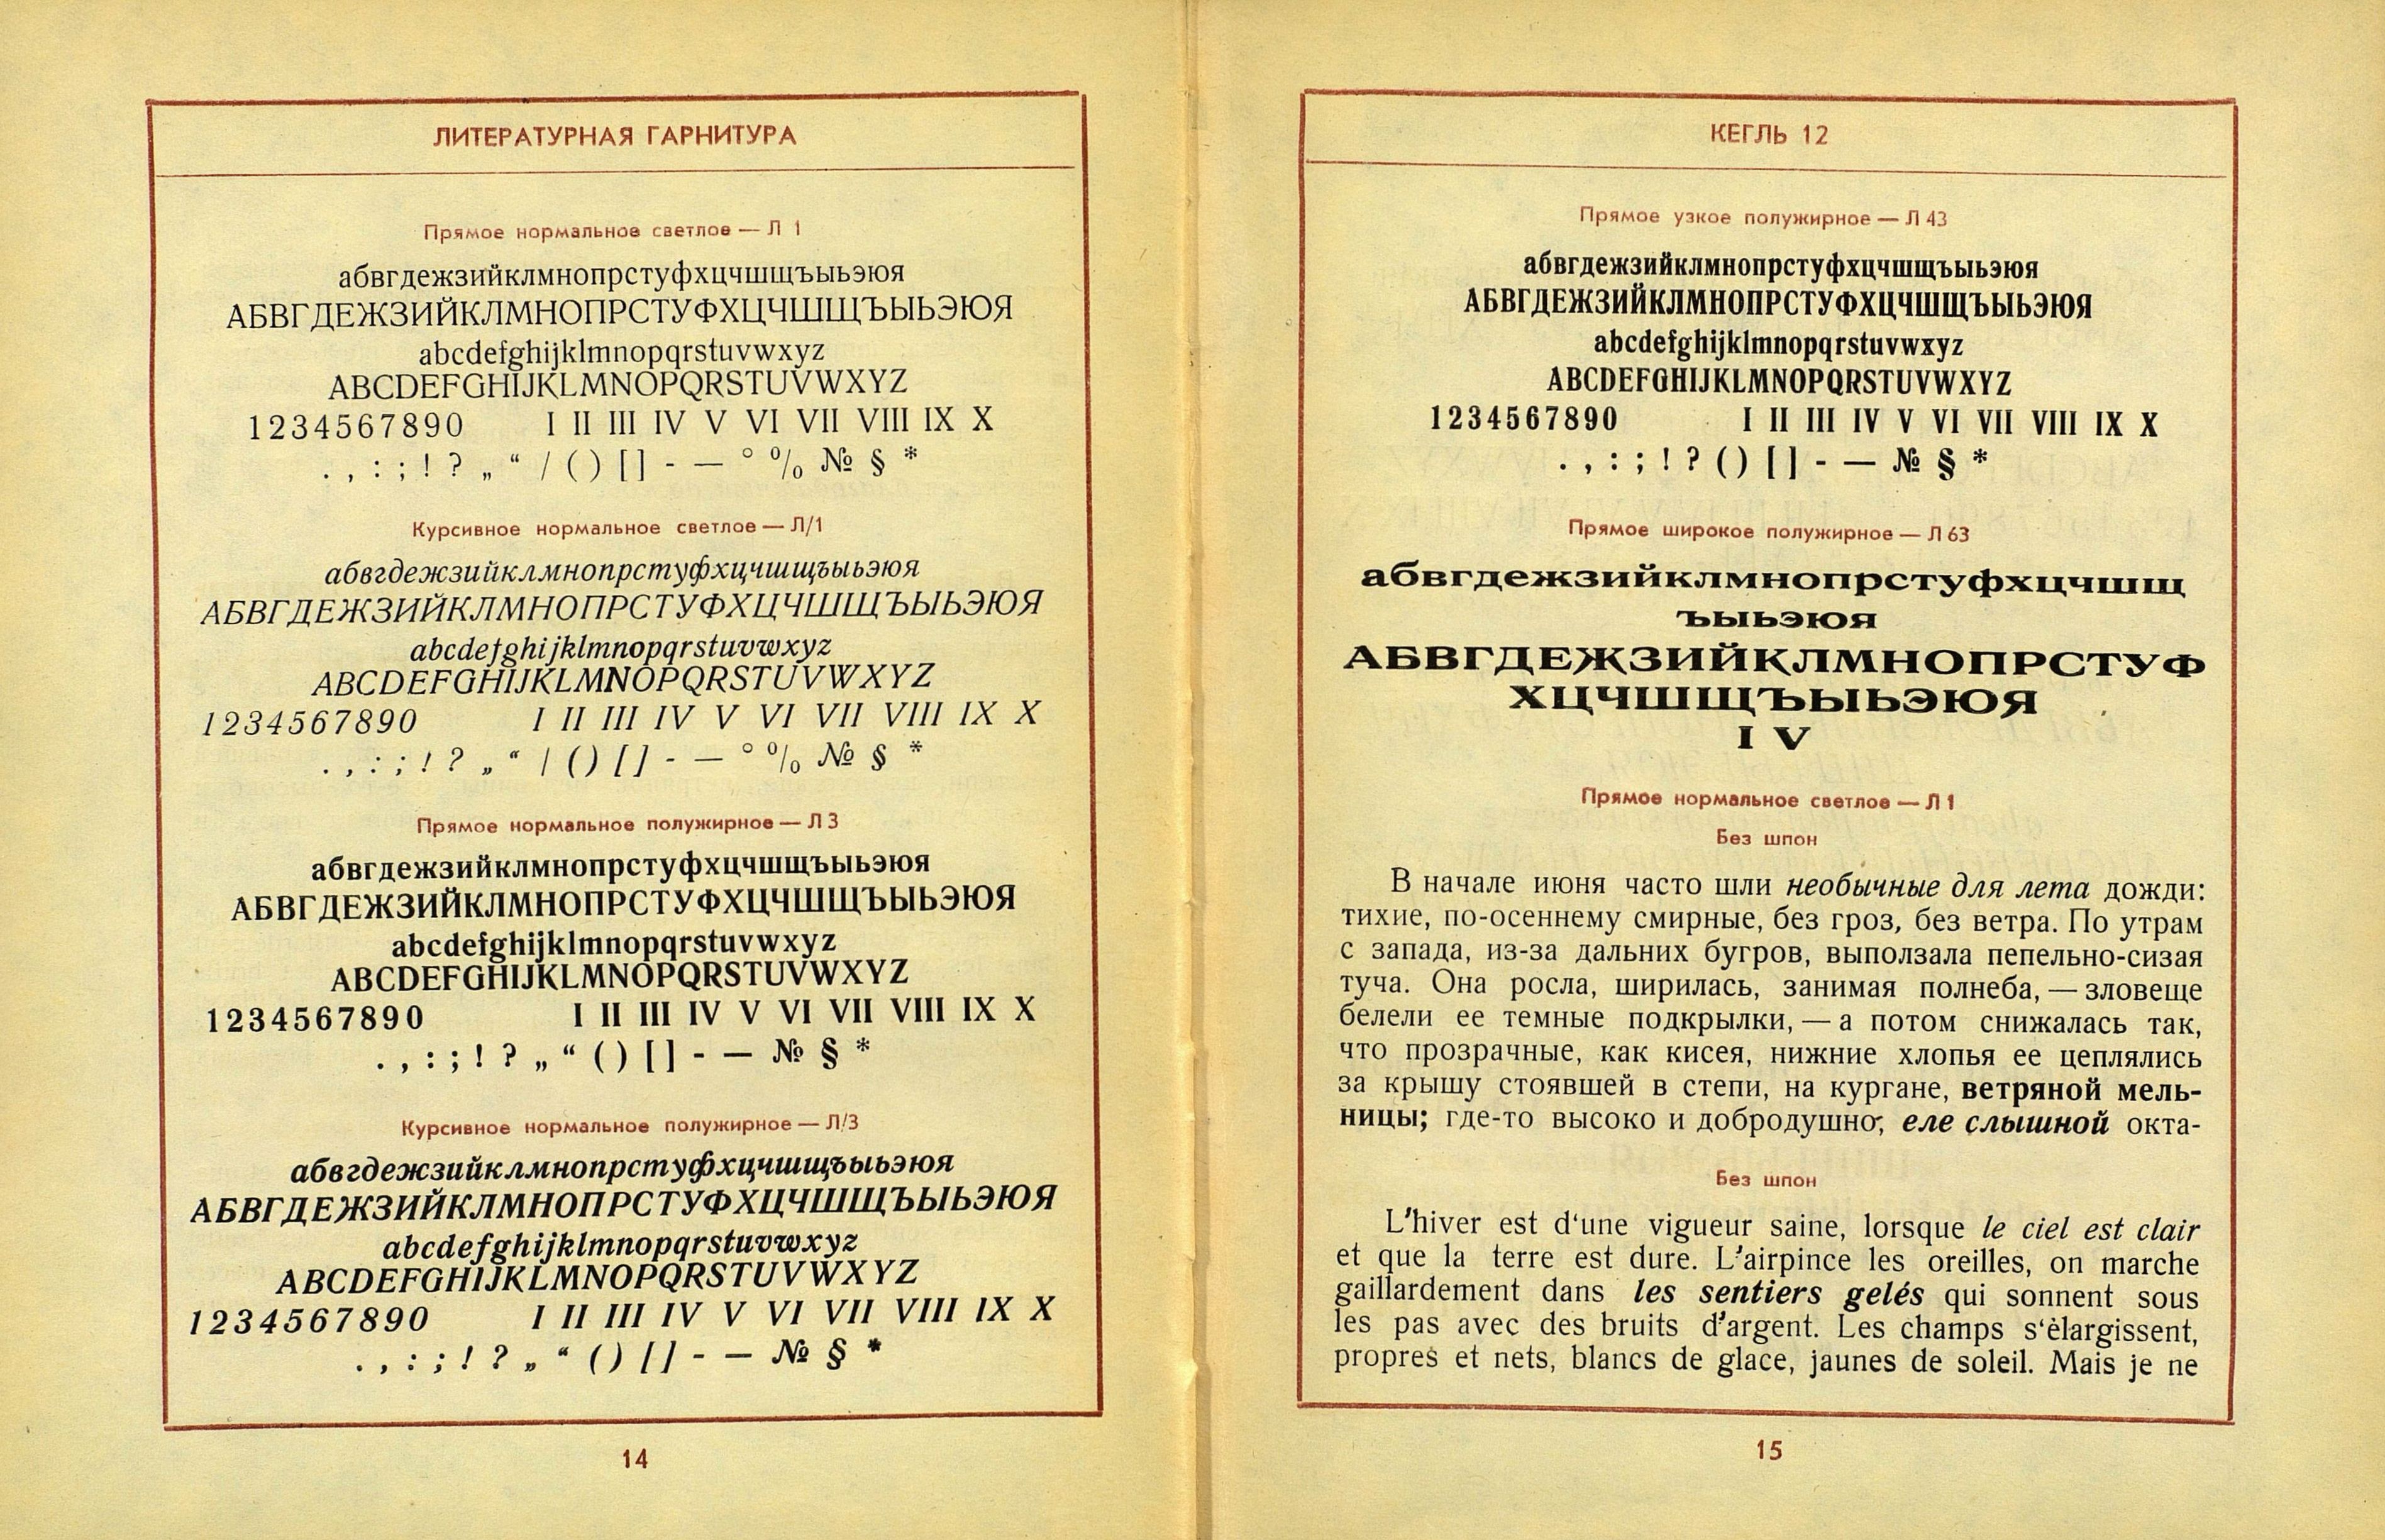 ЛИТЕРАТУРНАЯ ГАРНИТУРА
Прямое нормальное светлое — Л 1
абвгдежзийклмнопрстуфхцчшщъыьэюя
АБВГДЕЖЗИЙКЛМНОПРСТУФХЦЧШЩЪЫЬЭЮЯ
abcdefghijklmnopqrstuvwxyz
ABCDEFGHIJKLMNOPQRSTUVWXYZ
1234567890 I II III IV V VI VII VIII IX X
. , : ; ! ? „ “ / ( ) [ ] - — ° % № § *
Курсивное нормальное светлое — Л/1
абвгдежзийклмнопрстуфхцчшщъыьэюя
АБВГДЕЖЗИЙКЛМНОПРСТУФХЦЧШЩЪЫЬЭЮЯ
abcdefghijklmnopqrstuvwxyz
ABCDEFGHIJKLMNOPQRSTUVWXYZ
1234567890 I II III IV V VI VII VIII IX X
. , : ; ! ? „ “ / ( ) [ ] - — ° % № § *
Прямое нормальное полужирное — Л 3
абвгдежзийклмнопрстуфхцчшщъыьэюя
АБВГДЕЖЗИЙКЛМНОПРСТУФХЦЧШЩЪЫЬЭЮЯ
abcdefghijklmnopqrstuvwxyz
ABCDEFGHIJKLMNOPQRSTUVWXYZ
1234567890 I II III IV V VI VII VIII IX X
. , : ; ! ? „ “ ( ) [ ] - — № § *
Курсивное нормальное полужирное — Л/3
абвгдежзийклмнопрстуфхцчшщъыьэюя
АБВГДЕЖЗИЙКЛМНОПРСТУФХЦЧШЩЪЫЬЭЮЯ
abcdefghijklmnopqrstuvwxyz
ABCDEFGHIJKLMNOPQRSTUVWXYZ
1234567890 I II III IV V VI VII VIII IX X
. , : ; ! ? „ “ ( ) [ ] - — № § *
14
КЕГЛЬ 12
Прямое узкое полужирное — Л 43
абвгдежзийклмнопрстуфхцчшщъыьэюя
АБВГДЕЖЗИЙКЛМНОПРСТУФХЦЧШЩЪЫЬЭЮЯ
abcdefghijklmnopqrstuvwxyz
ABCDEFGHIJKLMNOPQRSTUVWXYZ
1234567890 I II III IV V VI VII VIII IX X
. , : ; ! ? ( ) [ ] - — № § *
Прямое широкое полужирное — Л 63
абвгдежзийклмнопрстуфхцчшщ
ъыьэюя
АБВГДЕЖЗИЙКЛМНОПРСТУФ
ХЦЧШЩЪЫЬЭЮЯ
I V
Прямое нормальное светлое — Л 1
Без шпон
В начале июня часто шли необычные для лета дожди:
тихие, по-осеннему смирные, без гроз, без ветра. По утрам
с запада, из-за дальних бугров, выползала пепельно-сизая
туча. Она росла, ширилась, занимая полнеба, — зловеще
белели ее темные подкрылки, — а потом снижалась так,
что прозрачные, как кисея, нижние хлопья ее цеплялись
за крышу стоявшей в степи, на кургане, ветряной мель-
ницы; где-то высоко и добродушно, еле слышной окта-
Без шпон
L’hiver est d‘une vigueur saine, lorsque le ciel est clair
et que la terre est dure. L’airpince les oreilles, on marche
gaillardement dans les sentiers gelés qui sonnent sous
les pas avec des bruits d’argent. Les champs s‘èlargissent,
propres et nets, blancs de glace, jaunes de soleil. Mais je ne
15